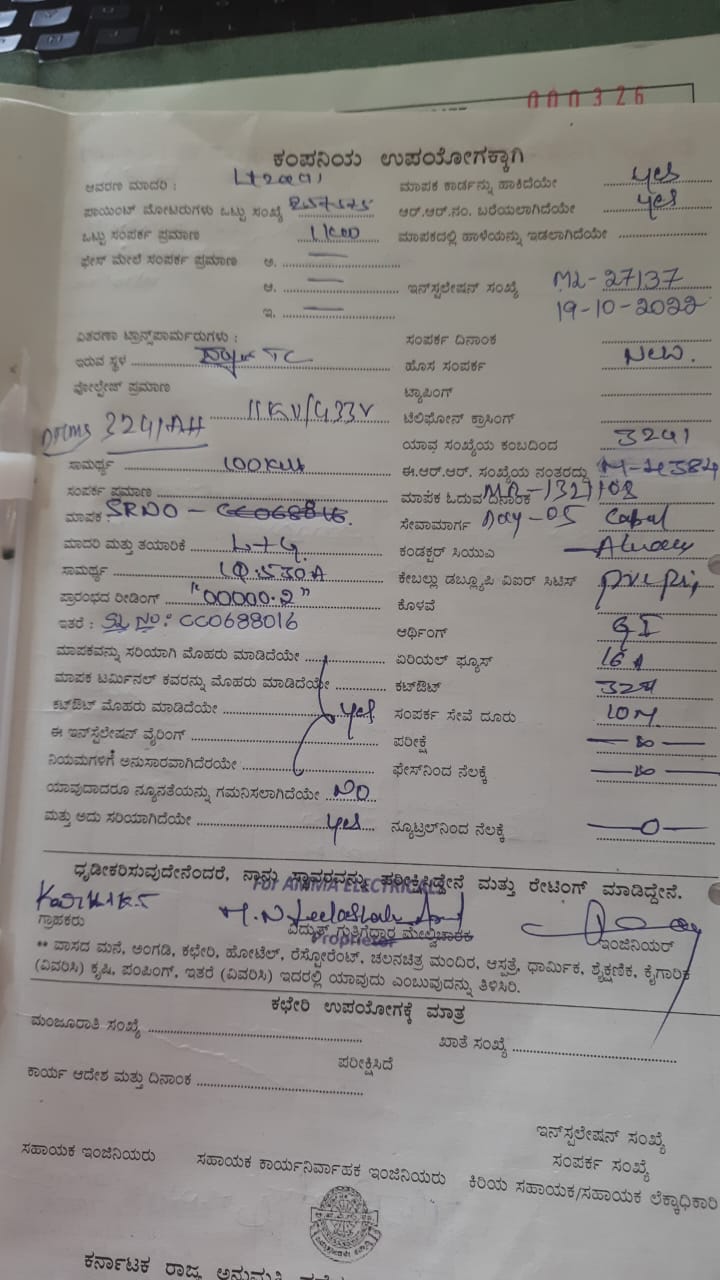 000326
ಕಂಪನಿಯ ಉಪಯೋಗಕ್ಕಾಗಿ
ಆವರಣ ಮಾದರಿ : ಮಾಪಕ ಕಾರ್ಡನ್ನು ಹಾಕಿದೆಯೇ yes
ಪಾಯಿಂಟ್ ಮೋಟರುಗಳು ಒಟ್ಟು ಸಂಖ್ಯೆ ಆರ್.ಆರ್.ನಂ. ಬರೆಯಲಾಗಿದೆಯೇ yes
ಒಟ್ಟು ಸಂಪರ್ಕ ಪ್ರಮಾಣ ಮಾಪಕದಲ್ಲಿ ಹಾಳೆಯನ್ನು ಇಡಲಾಗಿದೆಯೇ
ಫೇಸ್ ಮೇಲೆ ಸಂಪರ್ಕ ಪ್ರಮಾಣ ಅ.
ಆ. ಇನ್‌ಸ್ಟಲೇಷನ್ ಸಂಖ್ಯೆ ML-27137
ಇ. 19-10-2022
ವಿತರಣಾ ಟ್ರಾನ್ಸ್‌ಪಾರ್ಮರುಗಳು : ಸಂಪರ್ಕ ದಿನಾಂಕ
ಇರುವ ಸ್ಥಳ TC ಹೊಸ ಸಂಪರ್ಕ New.
ವೋಲ್ಟೇಜ್ ಪ್ರಮಾಣ 11KV/433V ಟ್ಯಾಪಿಂಗ್
3241AH ಟೆಲಿಫೋನ್ ಕ್ರಾಸಿಂಗ್
ಯಾವ ಸಂಖ್ಯೆಯ ಕಂಬದಿಂದ 3241
ಸಾಮರ್ಥ್ಯ ಈ.ಆರ್.ಆರ್. ಸಂಖ್ಯೆಯ ನಂತರದ್ದು
ಸಂಪರ್ಕ ಪ್ರಮಾಣ ಮಾಪಕ ಓದುವ ದಿನಾಂಕ
ಮಾಪಕ : SRNO - CC068816. ಸೇವಾಮಾರ್ಗ Day-05
ಮಾದರಿ ಮತ್ತು ತಯಾರಿಕೆ L+G. ಕಂಡಕ್ಟರ್ ಸಿಯುಎ
ಸಾಮರ್ಥ್ಯ ಕೇಬಲ್ಲು ಡಬ್ಲ್ಯೂಪಿ ವಿಐರ್ ಸಿಟಿಸ್
ಪ್ರಾರಂಭದ ರೀಡಿಂಗ್ "00000.2" ಕೊಳವೆ
ಇತರೆ : SL NO: CC0688016 ಆರ್ಥಿಂಗ್ GI
ಮಾಪಕವನ್ನು ಸರಿಯಾಗಿ ಮೊಹರು ಮಾಡಿದೆಯೇ ಏರಿಯಲ್ ಫ್ಯೂಸ್ 16A
ಮಾಪಕ ಟರ್ಮಿನಲ್ ಕವರನ್ನು ಮೊಹರು ಮಾಡಿದೆಯೇ ಕಟ್‌ಔಟ್ 32A
ಕಟ್‌ಔಟ್ ಮೊಹರು ಮಾಡಿದೆಯೇ yes ಸಂಪರ್ಕ ಸೇವೆ ದೂರು 10M.
ಈ ಇನ್‌ಸ್ಟಲೇಷನ್ ವೈರಿಂಗ್ ಪರೀಕ್ಷೆ
ನಿಯಮಗಳಿಗೆ ಅನುಸಾರವಾಗಿದೆರಯೇ ಫೇಸ್‌ನಿಂದ ನೆಲಕ್ಕೆ
ಯಾವುದಾದರೂ ನ್ಯೂನತೆಯನ್ನು ಗಮನಿಸಲಾಗಿದೆಯೇ NO
ಮತ್ತು ಅದು ಸರಿಯಾಗಿದೆಯೇ yes ನ್ಯೂಟ್ರಲ್‌ನಿಂದ ನೆಲಕ್ಕೆ
ಧೃಡೀಕರಿಸುವುದೇನೆಂದರೆ, ನಾನು ಸ್ಥಾವರವನ್ನು ಪರೀಕ್ಷಿಸಿದ್ದೇನೆ ಮತ್ತು ರೇಟಿಂಗ್ ಮಾಡಿದ್ದೇನೆ.
ಗ್ರಾಹಕರು ವಿದ್ಯುತ್ ಗುತ್ತಿಗೆದ್ದಾರ ಮೇಲ್ವಿಚಾರಕ ಇಂಜಿನಿಯರ್
Proprietor
** ವಾಸದ ಮನೆ, ಅಂಗಡಿ, ಕಛೇರಿ, ಹೋಟೆಲ್, ರೆಸ್ಟೋರೆಂಟ್, ಚಲನಚಿತ್ರ ಮಂದಿರ, ಆಸ್ಪತ್ರೆ, ಧಾರ್ಮಿಕ, ಶೈಕ್ಷಣಿಕ, ಕೈಗಾರಿಕೆ
(ವಿವರಿಸಿ) ಕೃಷಿ, ಪಂಪಿಂಗ್, ಇತರೆ (ವಿವರಿಸಿ) ಇದರಲ್ಲಿ ಯಾವುದು ಎಂಬುವುದನ್ನು ತಿಳಿಸಿರಿ.
ಕಛೇರಿ ಉಪಯೋಗಕ್ಕೆ ಮಾತ್ರ
ಮಂಜೂರಾತಿ ಸಂಖ್ಯೆ ಖಾತೆ ಸಂಖ್ಯೆ
ಪರೀಕ್ಷಿಸಿದೆ
ಕಾರ್ಯ ಆದೇಶ ಮತ್ತು ದಿನಾಂಕ
ಇನ್‌ಸ್ಟಲೇಷನ್ ಸಂಖ್ಯೆ
ಸಂಪರ್ಕ ಸಂಖ್ಯೆ
ಸಹಾಯಕ ಇಂಜಿನಿಯರು ಸಹಾಯಕ ಕಾರ್ಯನಿರ್ವಾಹಕ ಇಂಜಿನಿಯರು ಕಿರಿಯ ಸಹಾಯಕ/ಸಹಾಯಕ ಲೆಕ್ಕಾಧಿಕಾರಿ
ಕರ್ನಾಟಕ ರಾಜ್ಯ ಅನುಮತಿ